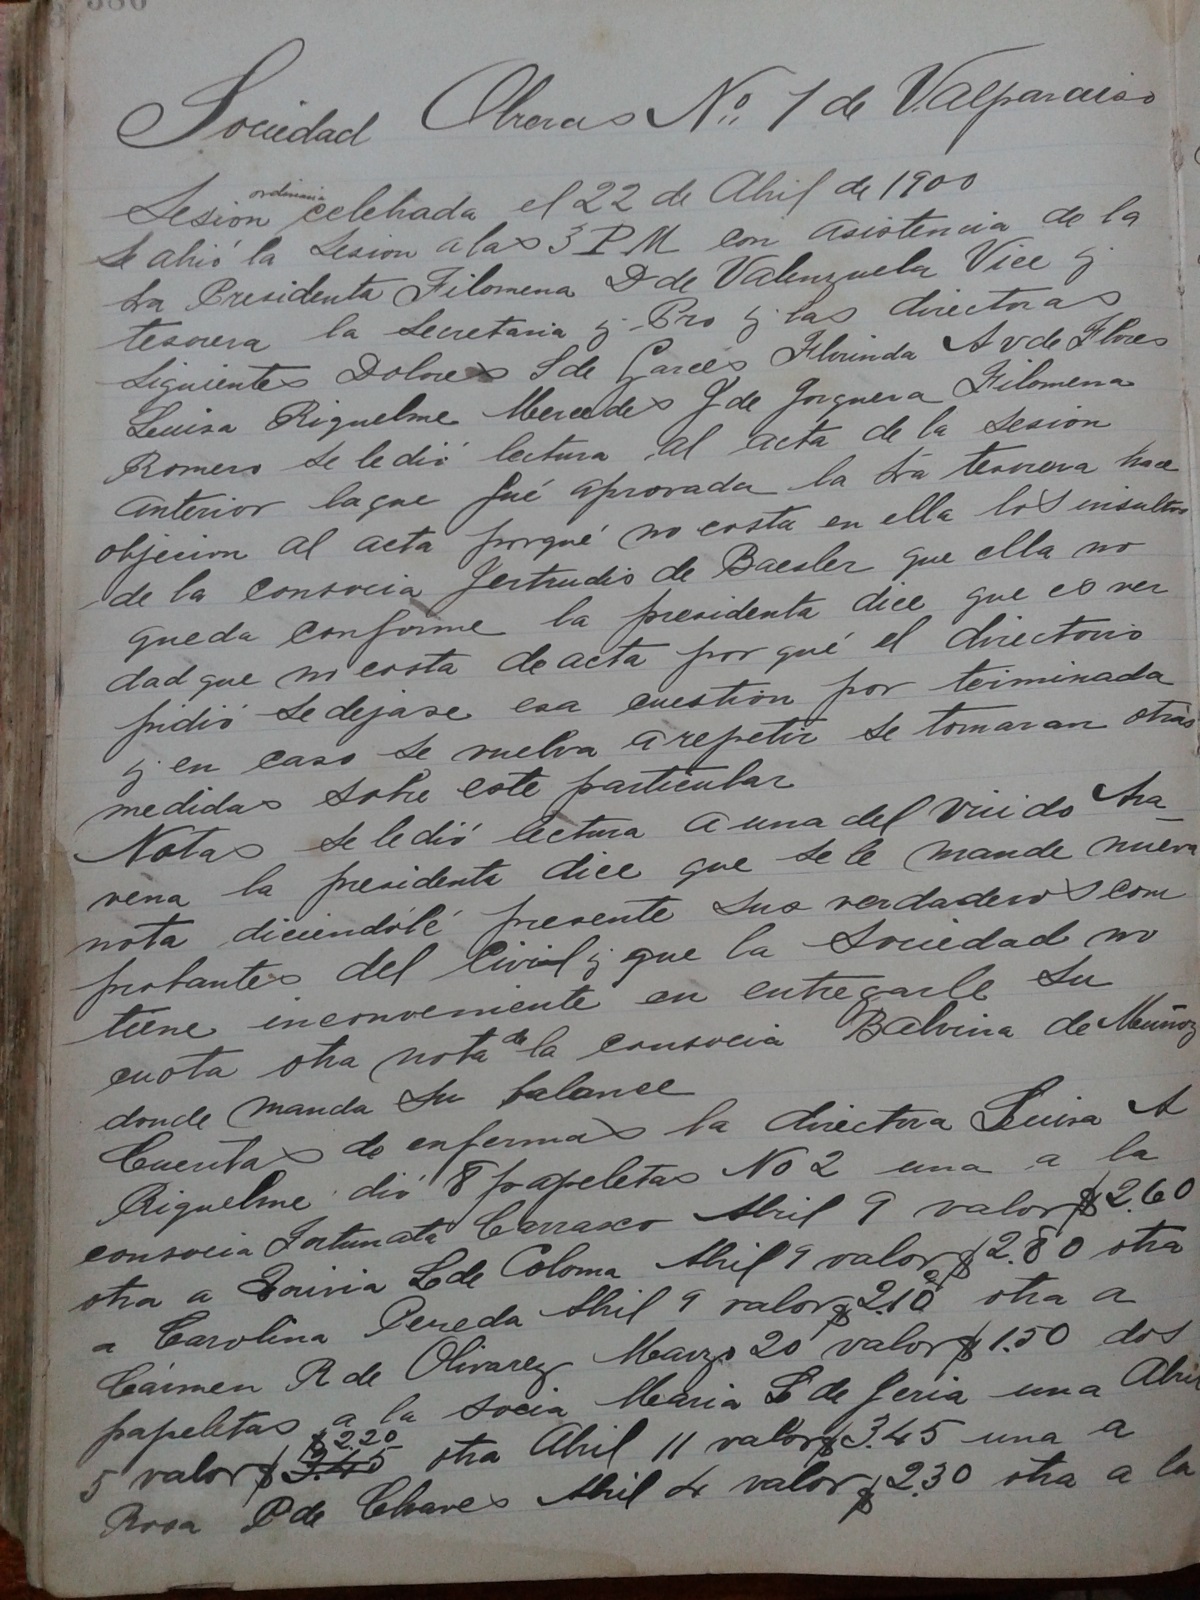 386
Sociedad Obreras No. 1 de Valparaiso
ordinaria
Sesion celebrada el 22 de Abril de 1900
Se abrió la Sesion a las 3 P M con asistencia de la
Sra Presidenta Filomena D de Valenzuela Vice y
tesorera la Secretaria y Pro y las directoras
Siguientes Dolores S de Garcés Florinda A v de Flores
Luisa Riquelme Mercedes J de Jorquera Filomena
Romero se le dió lectura al acta de la Sesion
anterior la que fué aprovada la Sra tesorera hace
objecion al acta porqué no costa en ella los insultos
de la consocia Jertrudis de Baesler que ella no
queda conforme la presidenta dice que es ver
dad que no costa de acta por qué el directorio
pidió se dejase esa cuestion por terminada
y en caso se vuelva a repetir se tomaran otras
medidas sobre este particular
Notas se le dió lectura a una del viudo Ara
vena la presidenta dice que se le mande nueva
nota diciendólé presente sus verdaderos com
probantes del Civil y que la Sociedad no
tiene inconveniente en entregarle Su
cuota otra nota de la consocia Balvina de Muñoz
donde manda Su balance
Cuentas de enfermas la directora Luisa A
Riquelme dió 8 papeletas No 2 una a la
consocia Fortunata Carrasco Abril 9 valor $2.60
otra a L de Coloma Abril 9 valor $2.80 otra
a Carolina Pereda Abril 9 valor $2.10 otra a
Cármen R de Olivarez Marzo 20 valor $1.50 dos
papeletas a la socia Maria L de Jeria una Abril
$2.20
5 valor $3.45 otra Abril 11 valor $3.45 una a
Rosa P de Chaves Abril 4 valor $2.30 otra a la